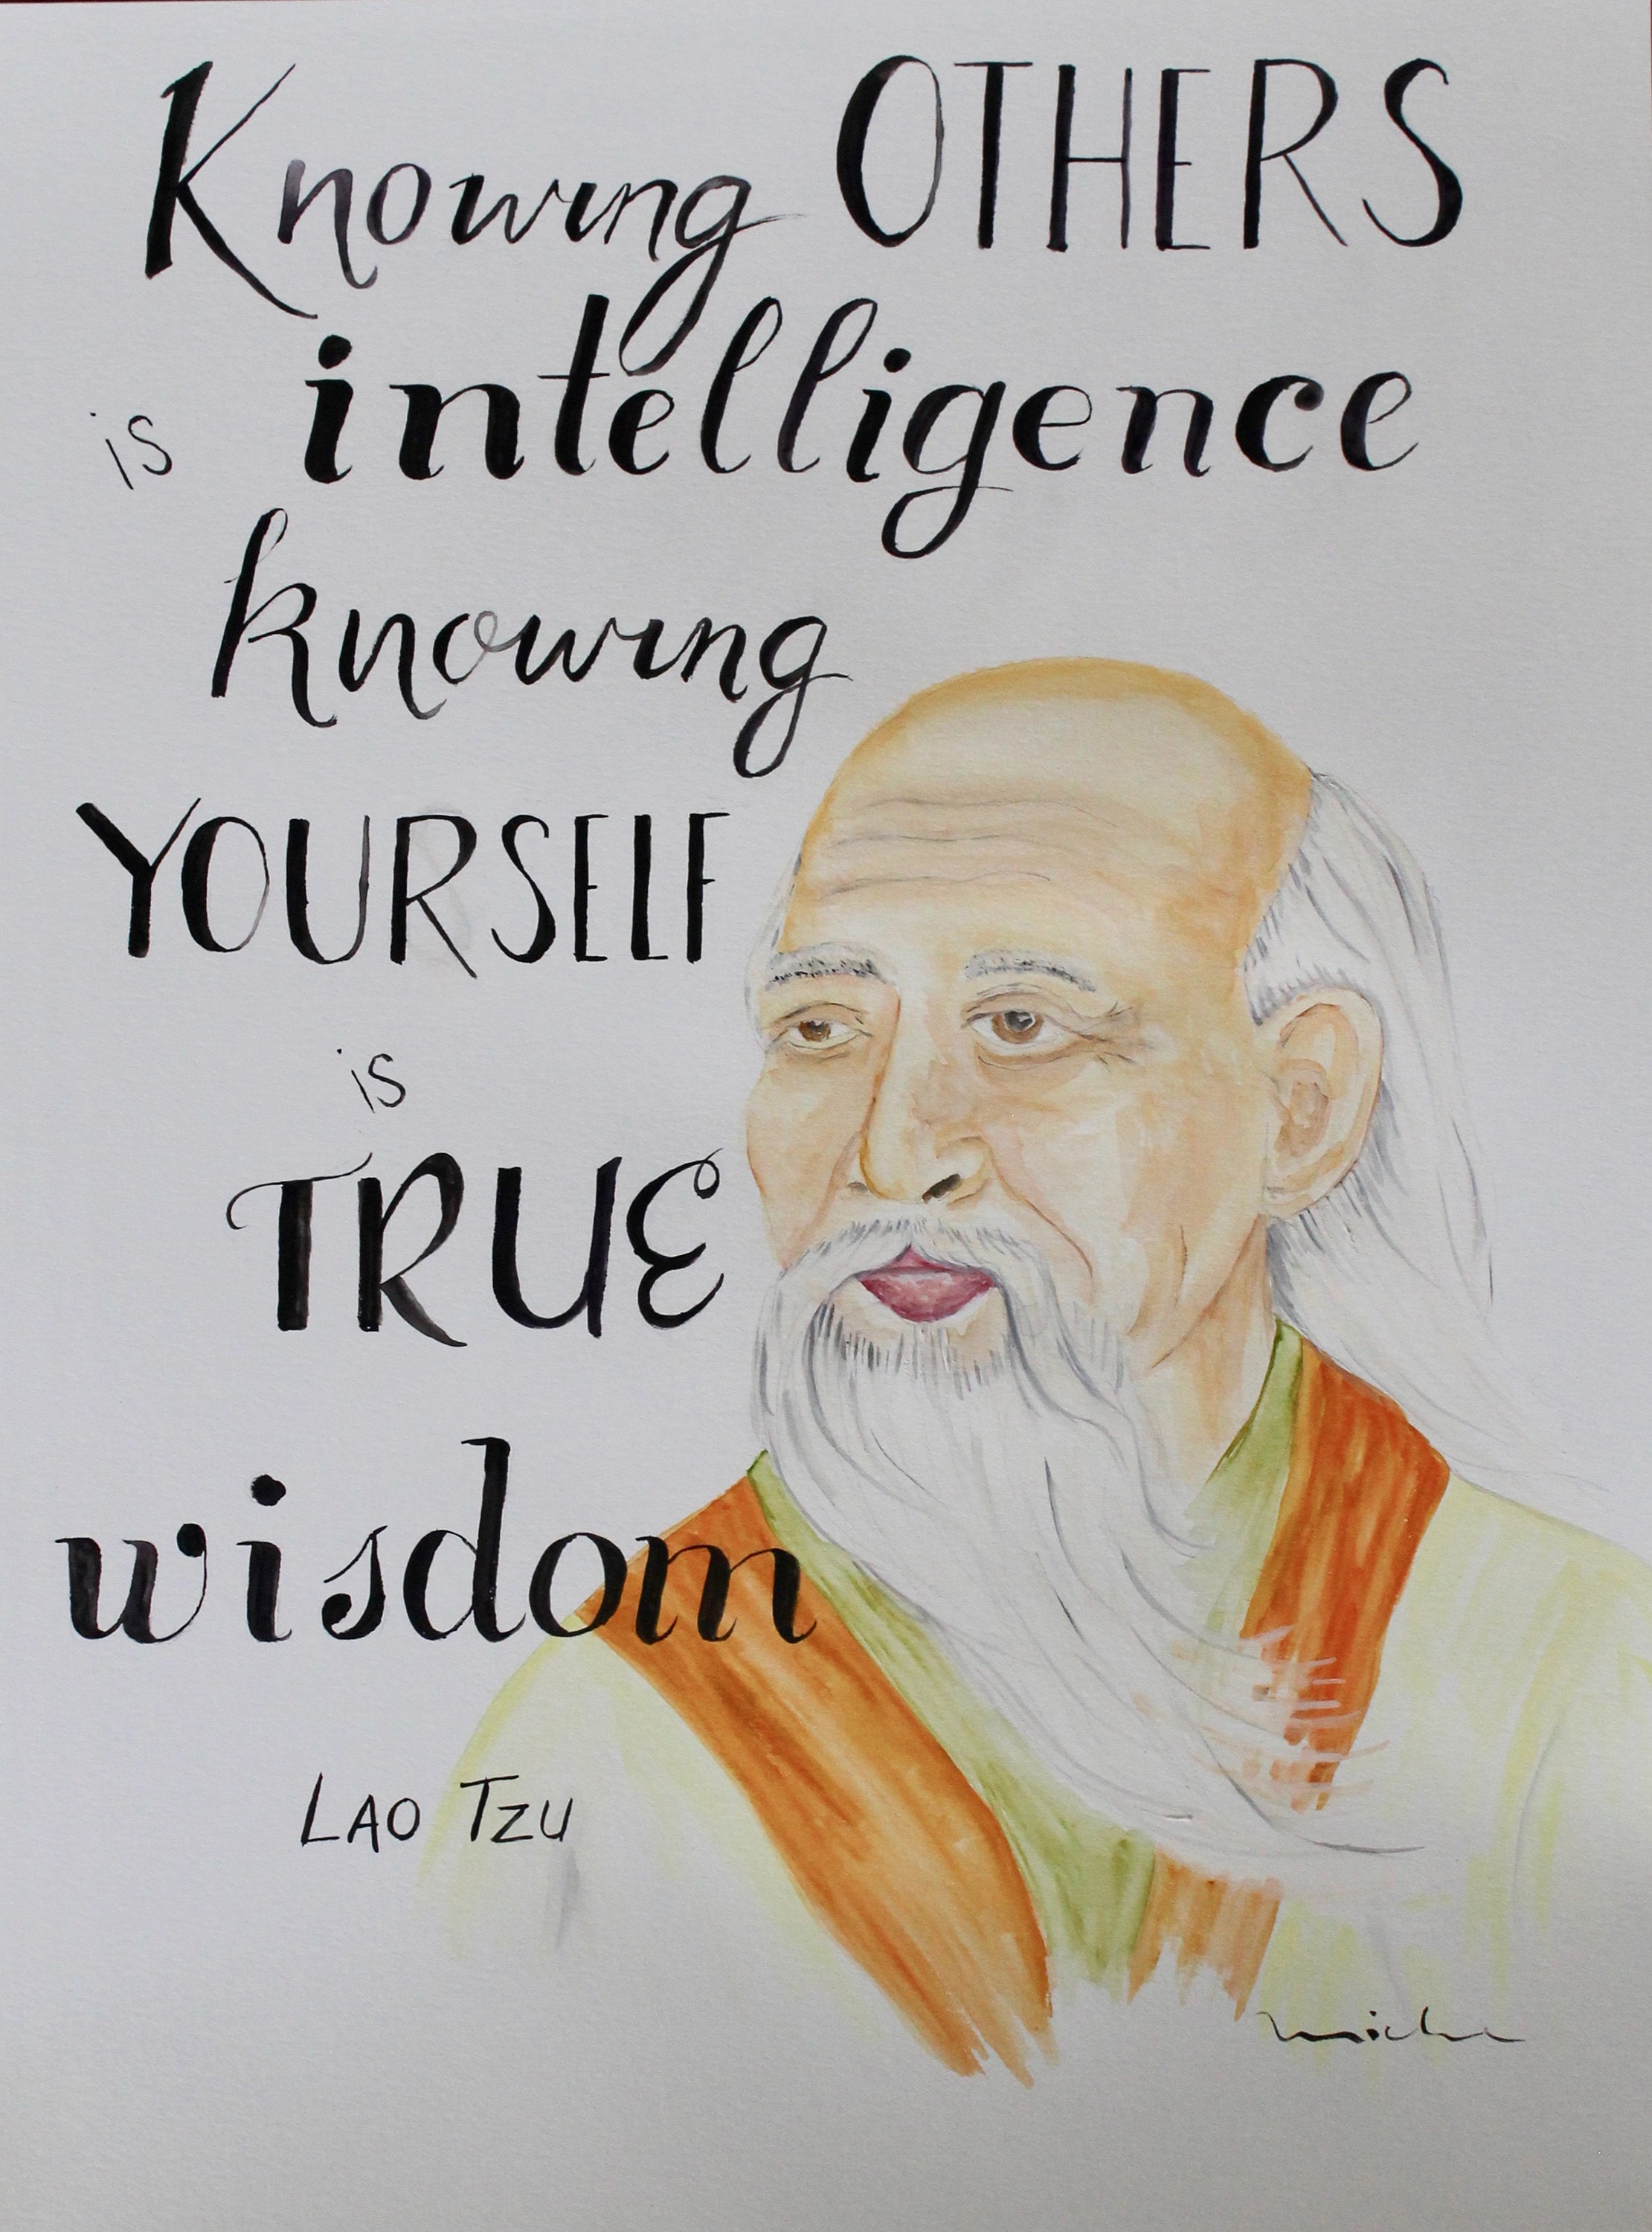 Knowing OTHERS
is intelligence
knowing
YOURSELF
is
TRUE
wisdom
LAO TZU